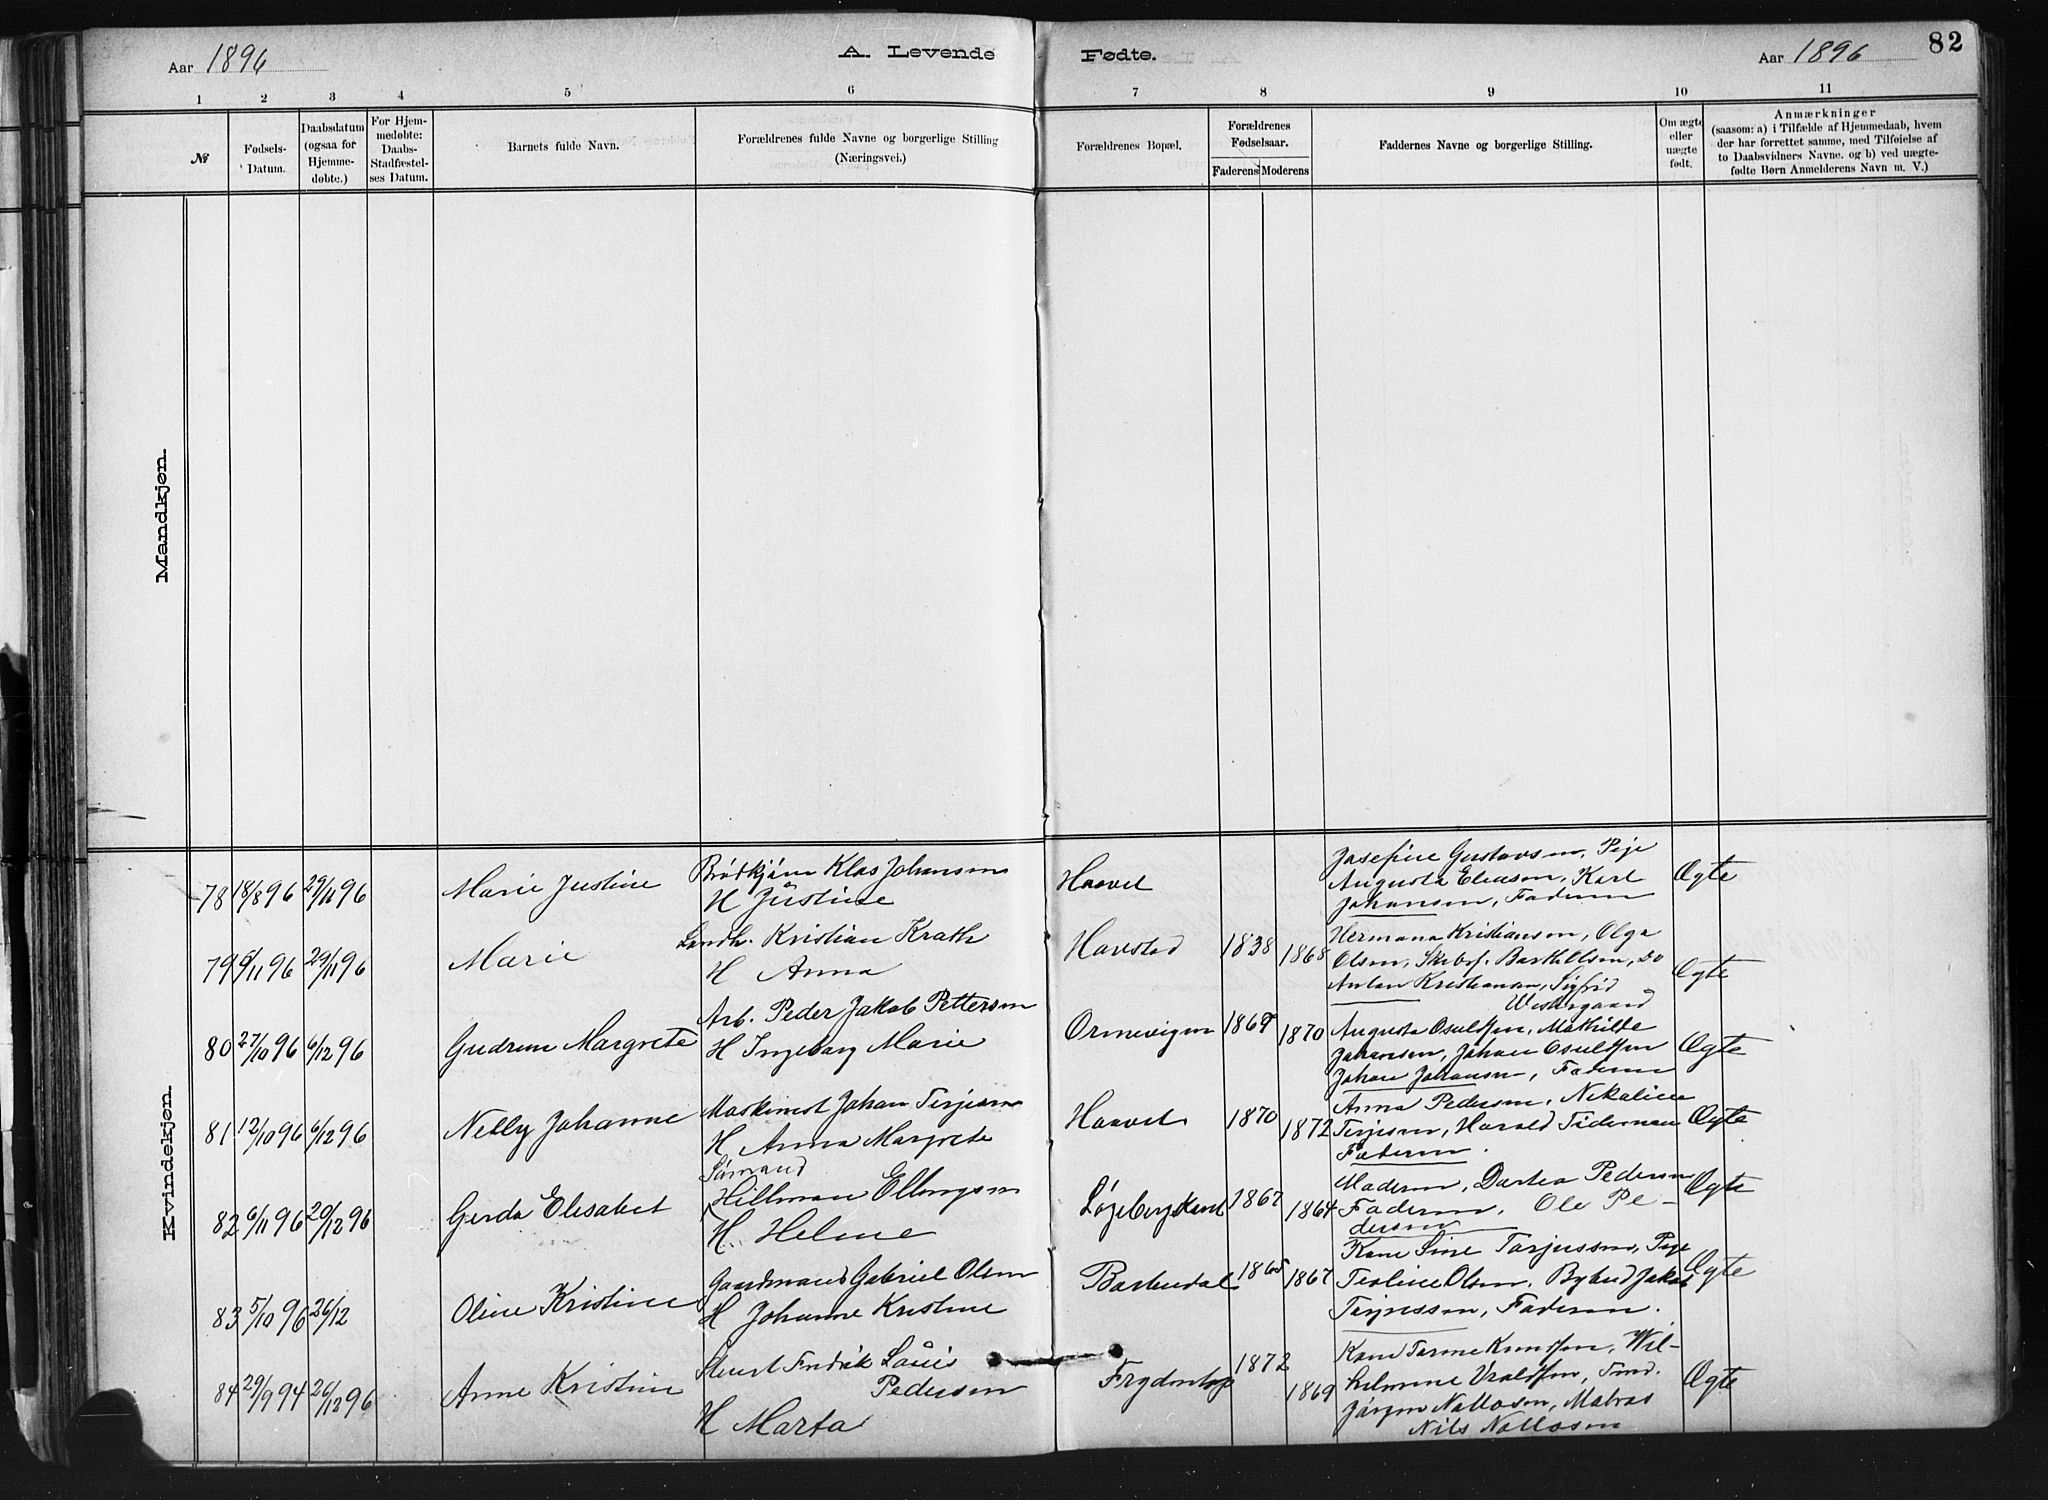 Aar 1896
A. Levende Fødte.
Aar 1896
82
1 2 3 4 5 6 7 8 9 10 11
№
Fødsels-
Datum.
Daabsdatum
(ogsaa for
Hjemme-
døbte.)
For Hjem-
medøbte:
Daabs-
Stadfæstel-
ses Datum.
Barnets fulde Navn.
Forældrenes fulde Navne og borgerlige Stilling
(Næringsvei.)
Forældrenes Bopæl.
Forældrenes
Fødselsaar.
Faderens Moderens
Faddernes Navne og borgerlige Stilling.
Om ægte
eller
uægte
født.
Anmærkninger
(saasom: a) i Tilfælde af Hjemmedaab, hvem
der har forrettet samme, med Tilføielse af
to Daabsvidners Navne. og b) ved uægte-
fødte Børn Anmelderens Navn m. V.)
Mandkjøn.
Kvindekjøn.
78 18/8 96 29/11 96
Marie Justine
Klas Johansen
H Justine
Haavet
Josefine Gustavsen, Pige
Augusta Eliasen, Karl
Johansen, Faderen
Ægte
79 9/11 96 29/11 96
Marie
Landh. Kristian Krath
H Anna
Havstad
1838 1868
Hermana Kristiansen, Olga
Olsen, Barth Olsen, Do
Anton Kristiansen, Sigfrid
Westergaard
Ægte
80 27/10 96 6/12 96
Gudrun Margrete
Arb. Peder Jakob Pettersen
H Ingeborg Marie
Ormevigen
1870
Augusta Osuldsen, Mathilde
Johansen, Johan Osuldsen
Johan Johansen, Faderen
Ægte
81 12/10 96 6/12 96
Nelly Johanne
Maskinist Johan Terjesen
H Anna Margrete
Haavet
1870 1872
Anna Pedersen, Nikoline
Terjesen, Harald Tideman
Faderen.
Ægte
82 6/11 96 20/12 96
Gerda Elisabet
Sømand
Hillman Ellingsen
H. Helene
1867 1864
Moderen, Dortea Pedersen
Faderen, Ole Pe-
dersen
Ægte
83 5/10 96 26/12
Oline Kristine
Gaardmand Gabriel Olsen
H Johanne Kristine
Barbudal
1865 1867
Kone Sine Torjussen, Pige
Teoline Olsen, Bybud Jakob
Terjussen, Faderen.
Ægte
84 29/9 94 26/12 96
Anne Kristine
Stuert Fredrik Louis
Pedersen
H Marta
1872 1869
Kone Tarine Knudsen, Wil-
helmine
Jørgen Nallosen, Matros
Nils Nallosen
Ægte